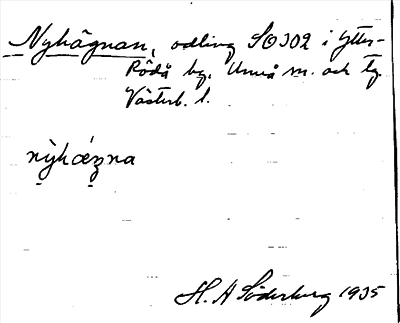 Nyhägnan, odling SO302 i Ytter-
Röda by, Umeå sn. och tg.
Västerb. l.
nỳhǽgna
H. A Söderberg 1935